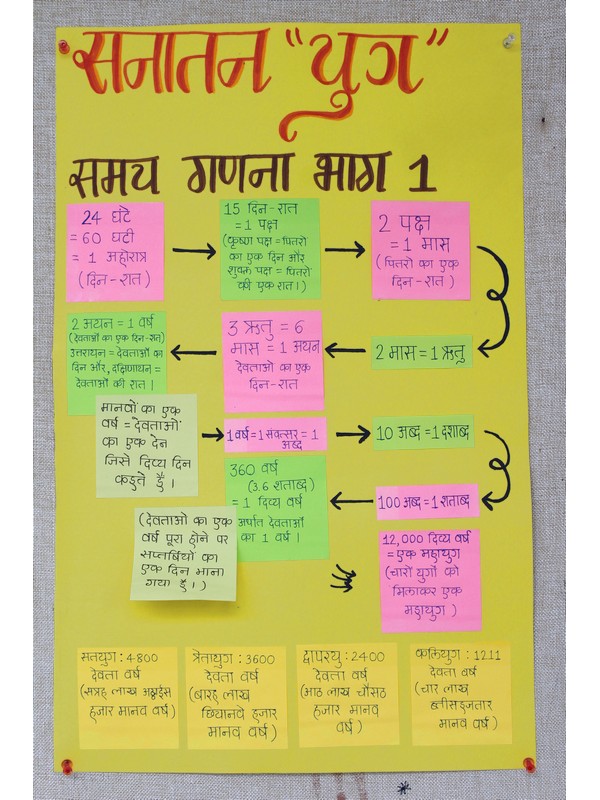 सनातन "युग"
समच गणना भाग 1
24 घंटे
= 60 घटी
= 1 अहोरात्र
(दिन-रात)
15 दिन-रात
= 1 पक्ष
(कृष्ण पक्ष = पितरो
का एक दिन और
शुक्ल पक्ष = पितरों
की एक रात।)
2 पक्ष
= 1 मास
(पितरो का एक
दिन-रात)
2 मास = 1 ऋतु
3 ऋतु = 6
मास = 1 अयन
देवताओ का एक
दिन-रात
2 अयन = 1 वर्ष
(देवताओं का एक दिन-रात)
उत्तरायन = देवताओं का
दिन और, दक्षिणायन =
देवताओं की रात।
मानवों का एक
वर्ष = देवताओं
का एक देन
जिसे दिव्य दिन
कहते हैं।
1 वर्ष = 1 सवत्सर = 1
अब्द
10 अब्द = 1 दशाब्द
100 अब्द = 1 शताब्द
360 वर्ष
(3.6 शताब्द)
= 1 दिव्य वर्ष
अर्पात देवताओं
का 1 वर्ष।
(देवताओ का एक
वर्ष पूरा होने पर
सप्तर्बियों का
एक दिन माना
गया है।)
12,000 दिव्य वर्ष
= एक महायुग
(चारों युगौ को
मिलाकर एक
महायुग)
सतयुग : 4800
देवता वर्ष
(सत्रह लाख अट्ठाईस
हजार मानव वर्ष)
त्रेतायुग : 3600
देवता वर्ष
(बारह लाख
छियानवे हजार
मानव वर्ष)
द्वापरयु : 2400
देवता वर्ष
(आठ लाख चौसठ
हजार मानव
वर्ष)
कलियुग : 1211
देवता वर्ष
(चार लाख
मानव वर्ष)